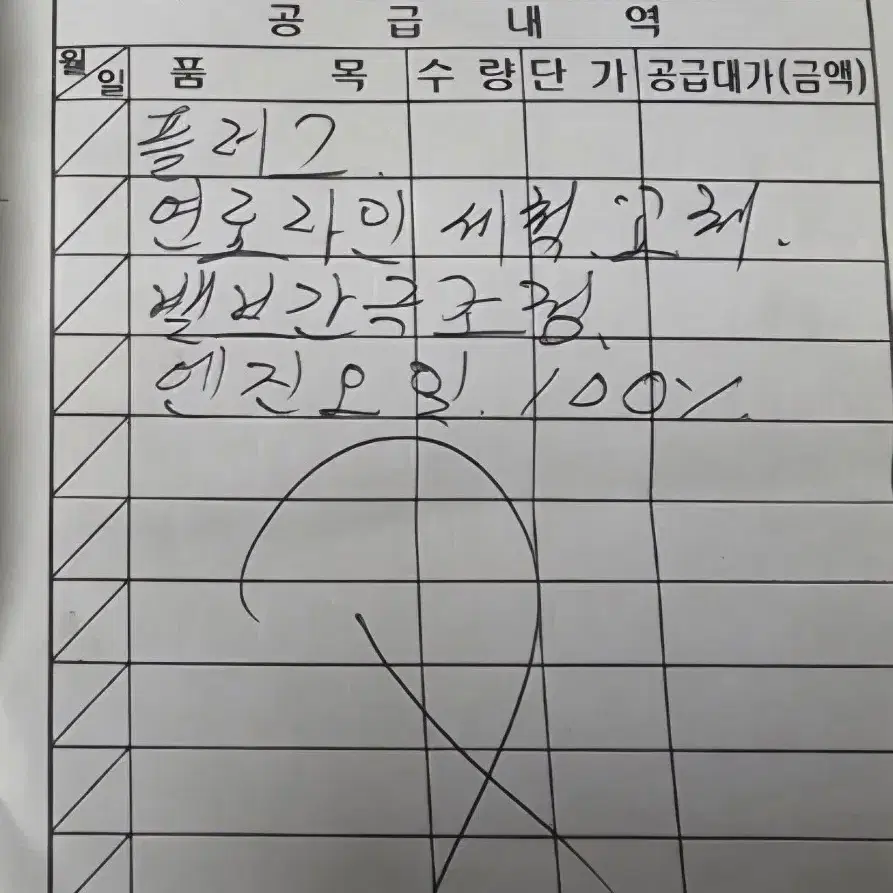 공급내역
월일 품목 수량 단가 공급대가(금액)
플러그.
연료라인 세척.교체.
밸브간극조정.
엔진오일.100%